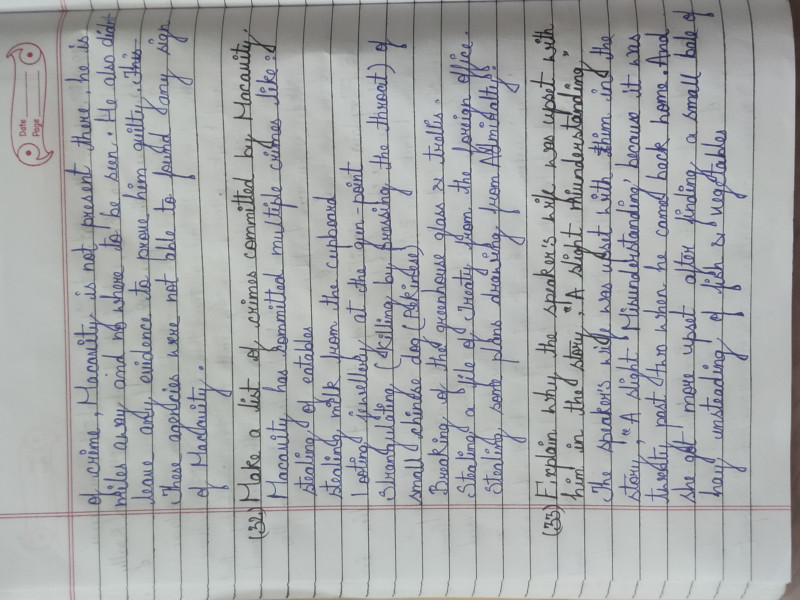 Date
Page
of crime, Macavity is not present there, he is
miles away and no where to be seen. He also didn't
leave any evidence to prove him guilty. This
These agencies were not able to found any sign
of Macavity.
(32) Make a list of crimes committed by Macavity.
Macavity has committed multiple crimes like:
stealing of eatables
stealing milk from the cupboard
Looting jewellery at the gun-point
Strangulating (killing by pressing the throat) of
small chinese dog (Pekinese)
Breaking of the greenhouse glass & trellis.
Stealing a file of treaty from the foreign office.
Stealing some plans drawing from Admiralty.
(33) Explain why the speaker's wife was upset with
him in the story, "A slight Misunderstanding"
The speaker's wife was upset with him in the
story, "A slight Misunderstanding" because it was
twenty past two when he came back home. And
she got more upset after finding a small bale of
hay unsteading of fish & vegetables